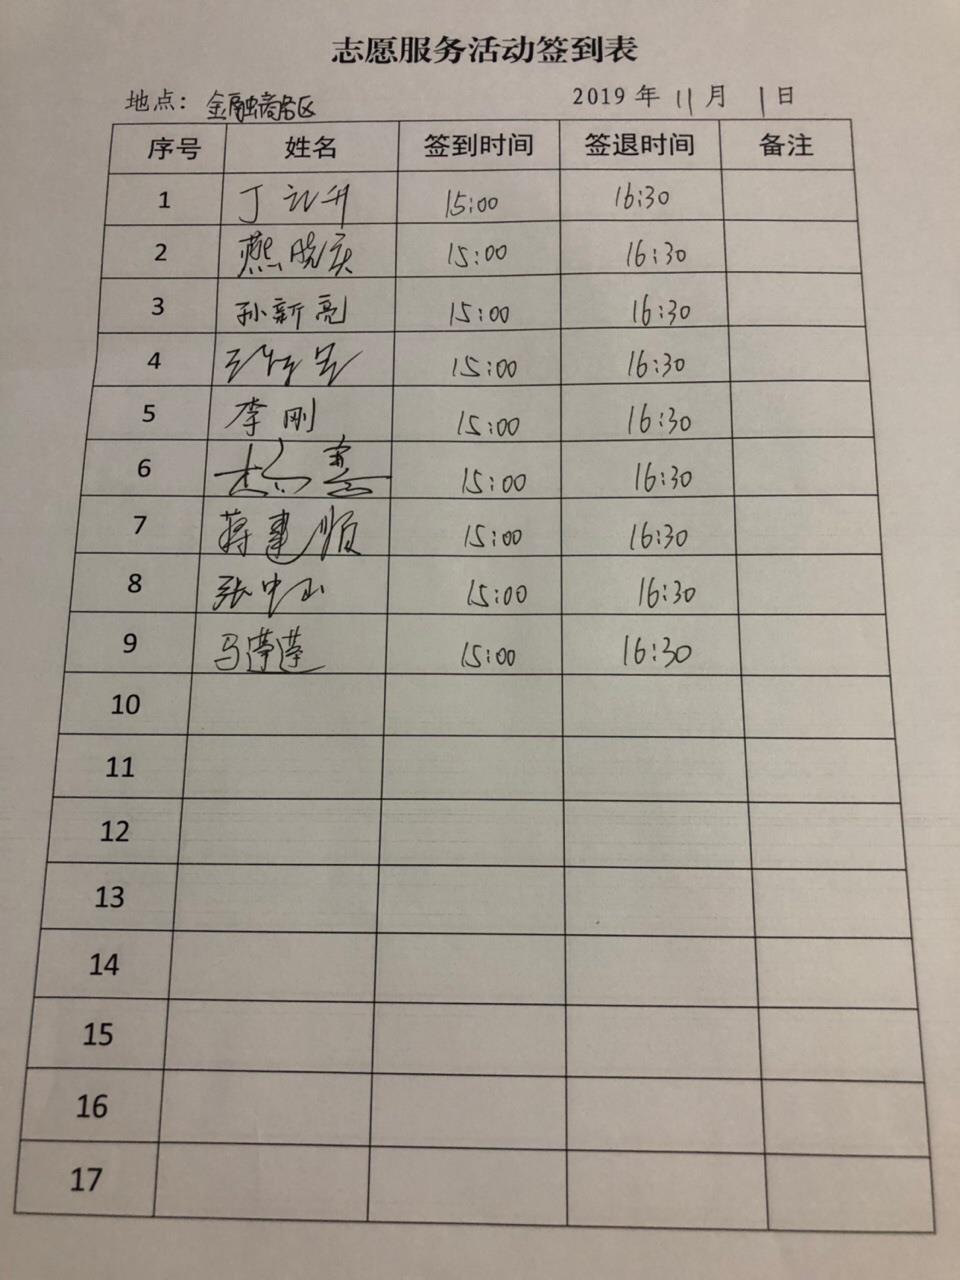 志愿服务活动签到表
地点：金融商务区 2019 年 11 月 1 日
序号 姓名 签到时间 签退时间 备注
1 丁 15:00 16:30
2 燕晓庆 15:00 16:30
3 孙新亮 15:00 16:30
4 15:00 16:30
5 李刚 15:00 16:30
6 15:00 16:30
7 蒋建顺 15:00 16:30
8 张中山 15:00 16:30
9 马莲莲 15:00 16:30
10
11
12
13
14
15
16
17